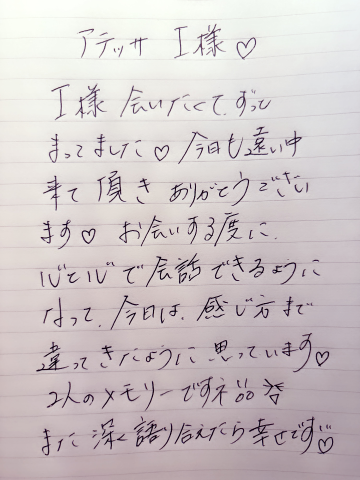 アテッサ I様♡
I様 会いたくて、ずっと
まってました♡ 今日も遠い中
来て頂き ありがとうござい
ます♡ お会いする度に
心と心で会話できるように
なって、今日は、感じ方まで
違ってきたように思っています♡
2人のメモリーですネ
また深く語り合えたら幸せです♡